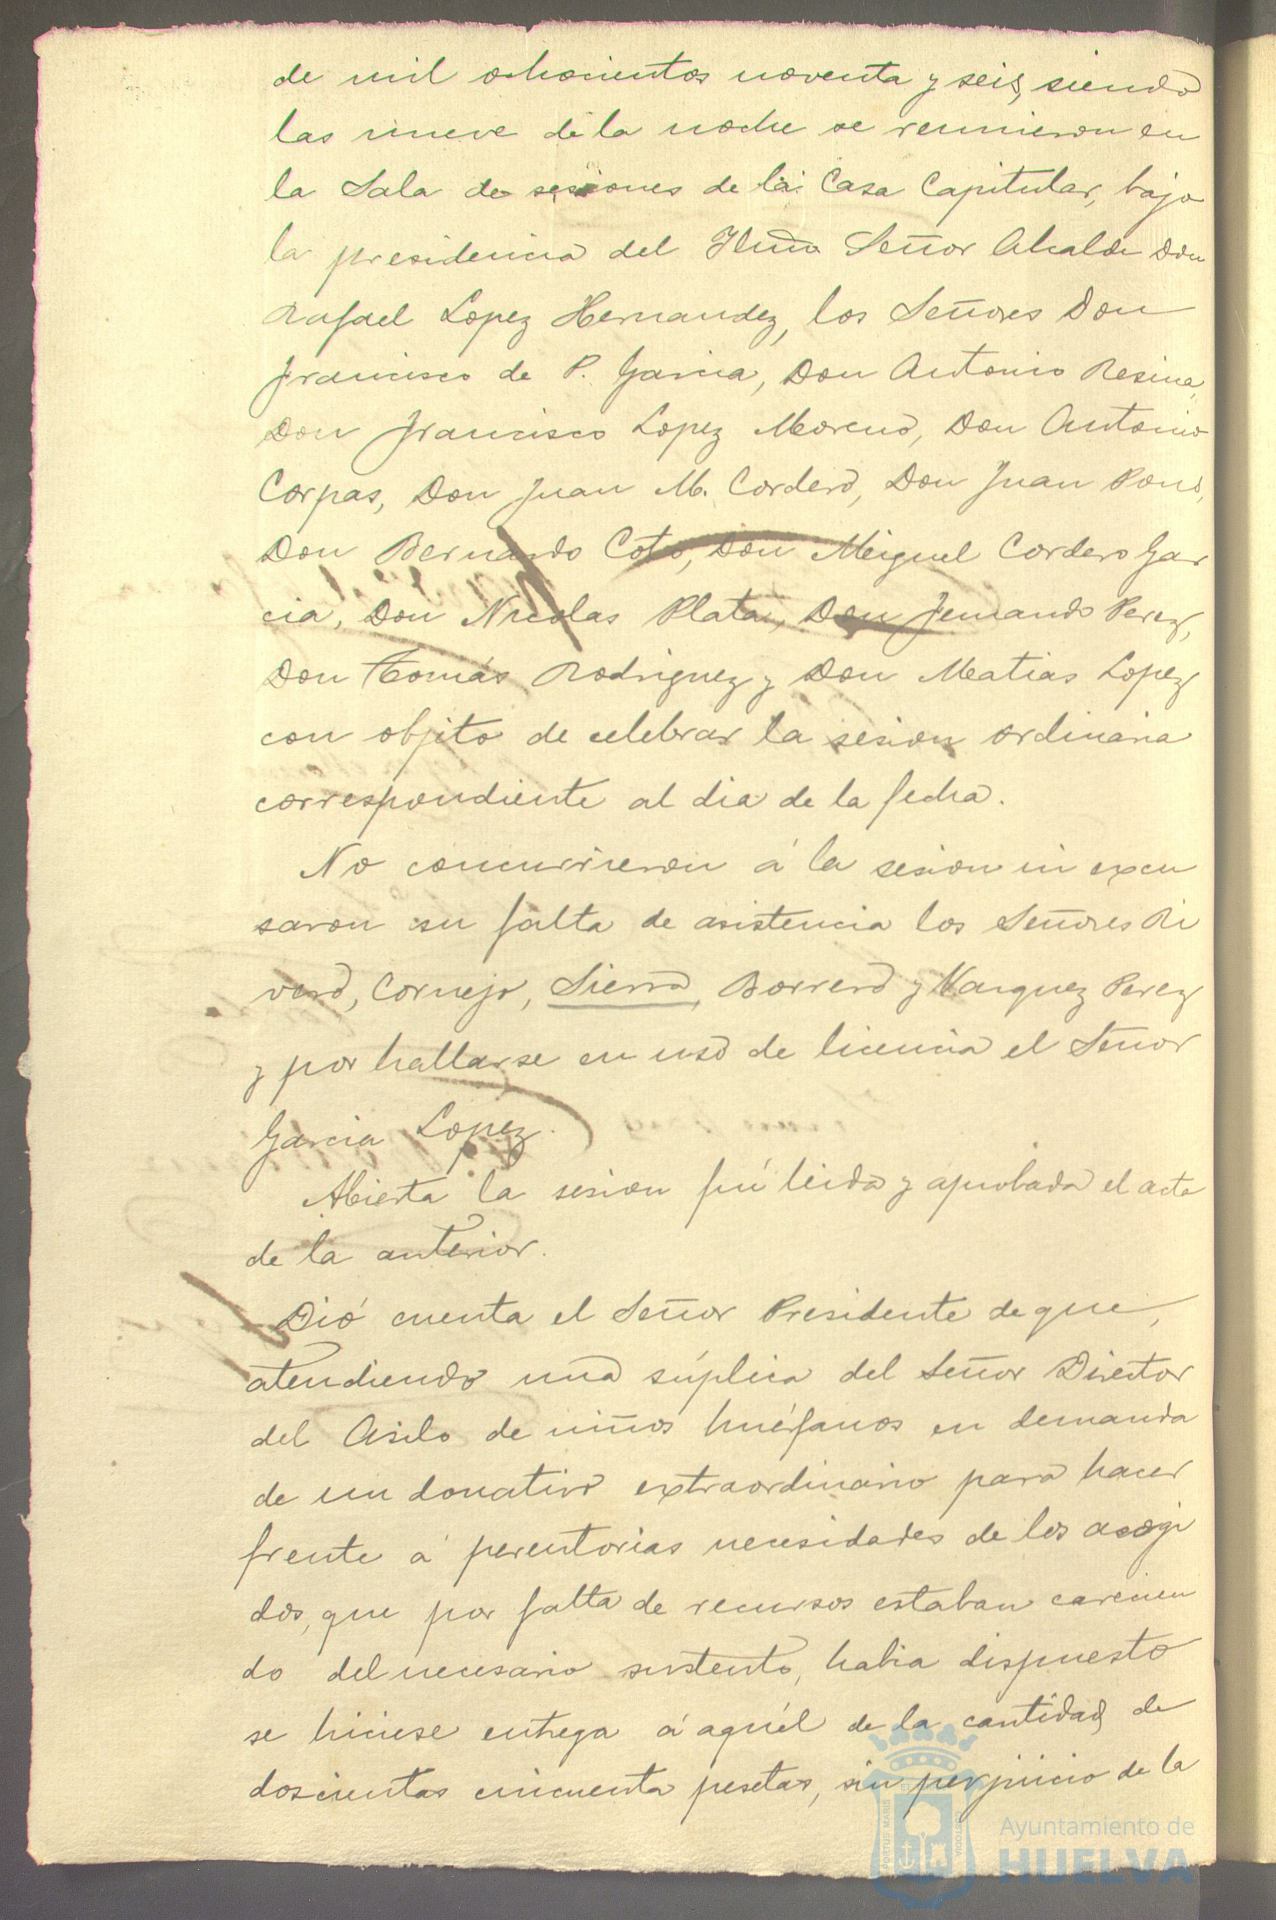 de mil ochocientos noventa y seis, siendo
las nueve de la noche se reunieron en
la Sala de sesiones de la Casa Capitular, bajo
la presidencia del Ilmo Señor Alcalde Don
Rafael Lopez Hernandez, los Señores Don
Francisco de P. Garcia, Don Antonio Resina,
Don Francisco Lopez Moreno, Don Antonio
Corpas, Don Juan M. Cordero, Don Juan Pons,
Don Bernardo Coto, Don Miguel Cordero Gar
cia, Don Nicolas Plata, Don Fernando Perez,
Don Tomás Rodriguez y Don Matias Lopez,
con objeto de celebrar la sesion ordinaria
correspondiente al dia de la fecha.
No concurrieron á la sesion ni excu
saron su falta de asistencia los Señores Ri
vero, Cornejo, Sierra, Borrero y Vazquez Perez
y por hallarse en uso de licencia el Señor
Garcia Lopez.
Abierta la sesion fué leida y aprobada el acta
de la anterior.
Dió cuenta el Señor Presidente de que,
atendiendo una súplica del Señor Director
del Asilo de niños huérfanos en demanda
de un donativo extraordinario para hacer
frente á perentorias necesidades de los acogi
dos, que por falta de recursos estaban carecien
do del necesario sustento, habia dispuesto
se hiciese entrega á aquél de la cantidad de
doscientas cincuenta pesetas, sin perjuicio de la
Ayuntamiento de
HUELVA